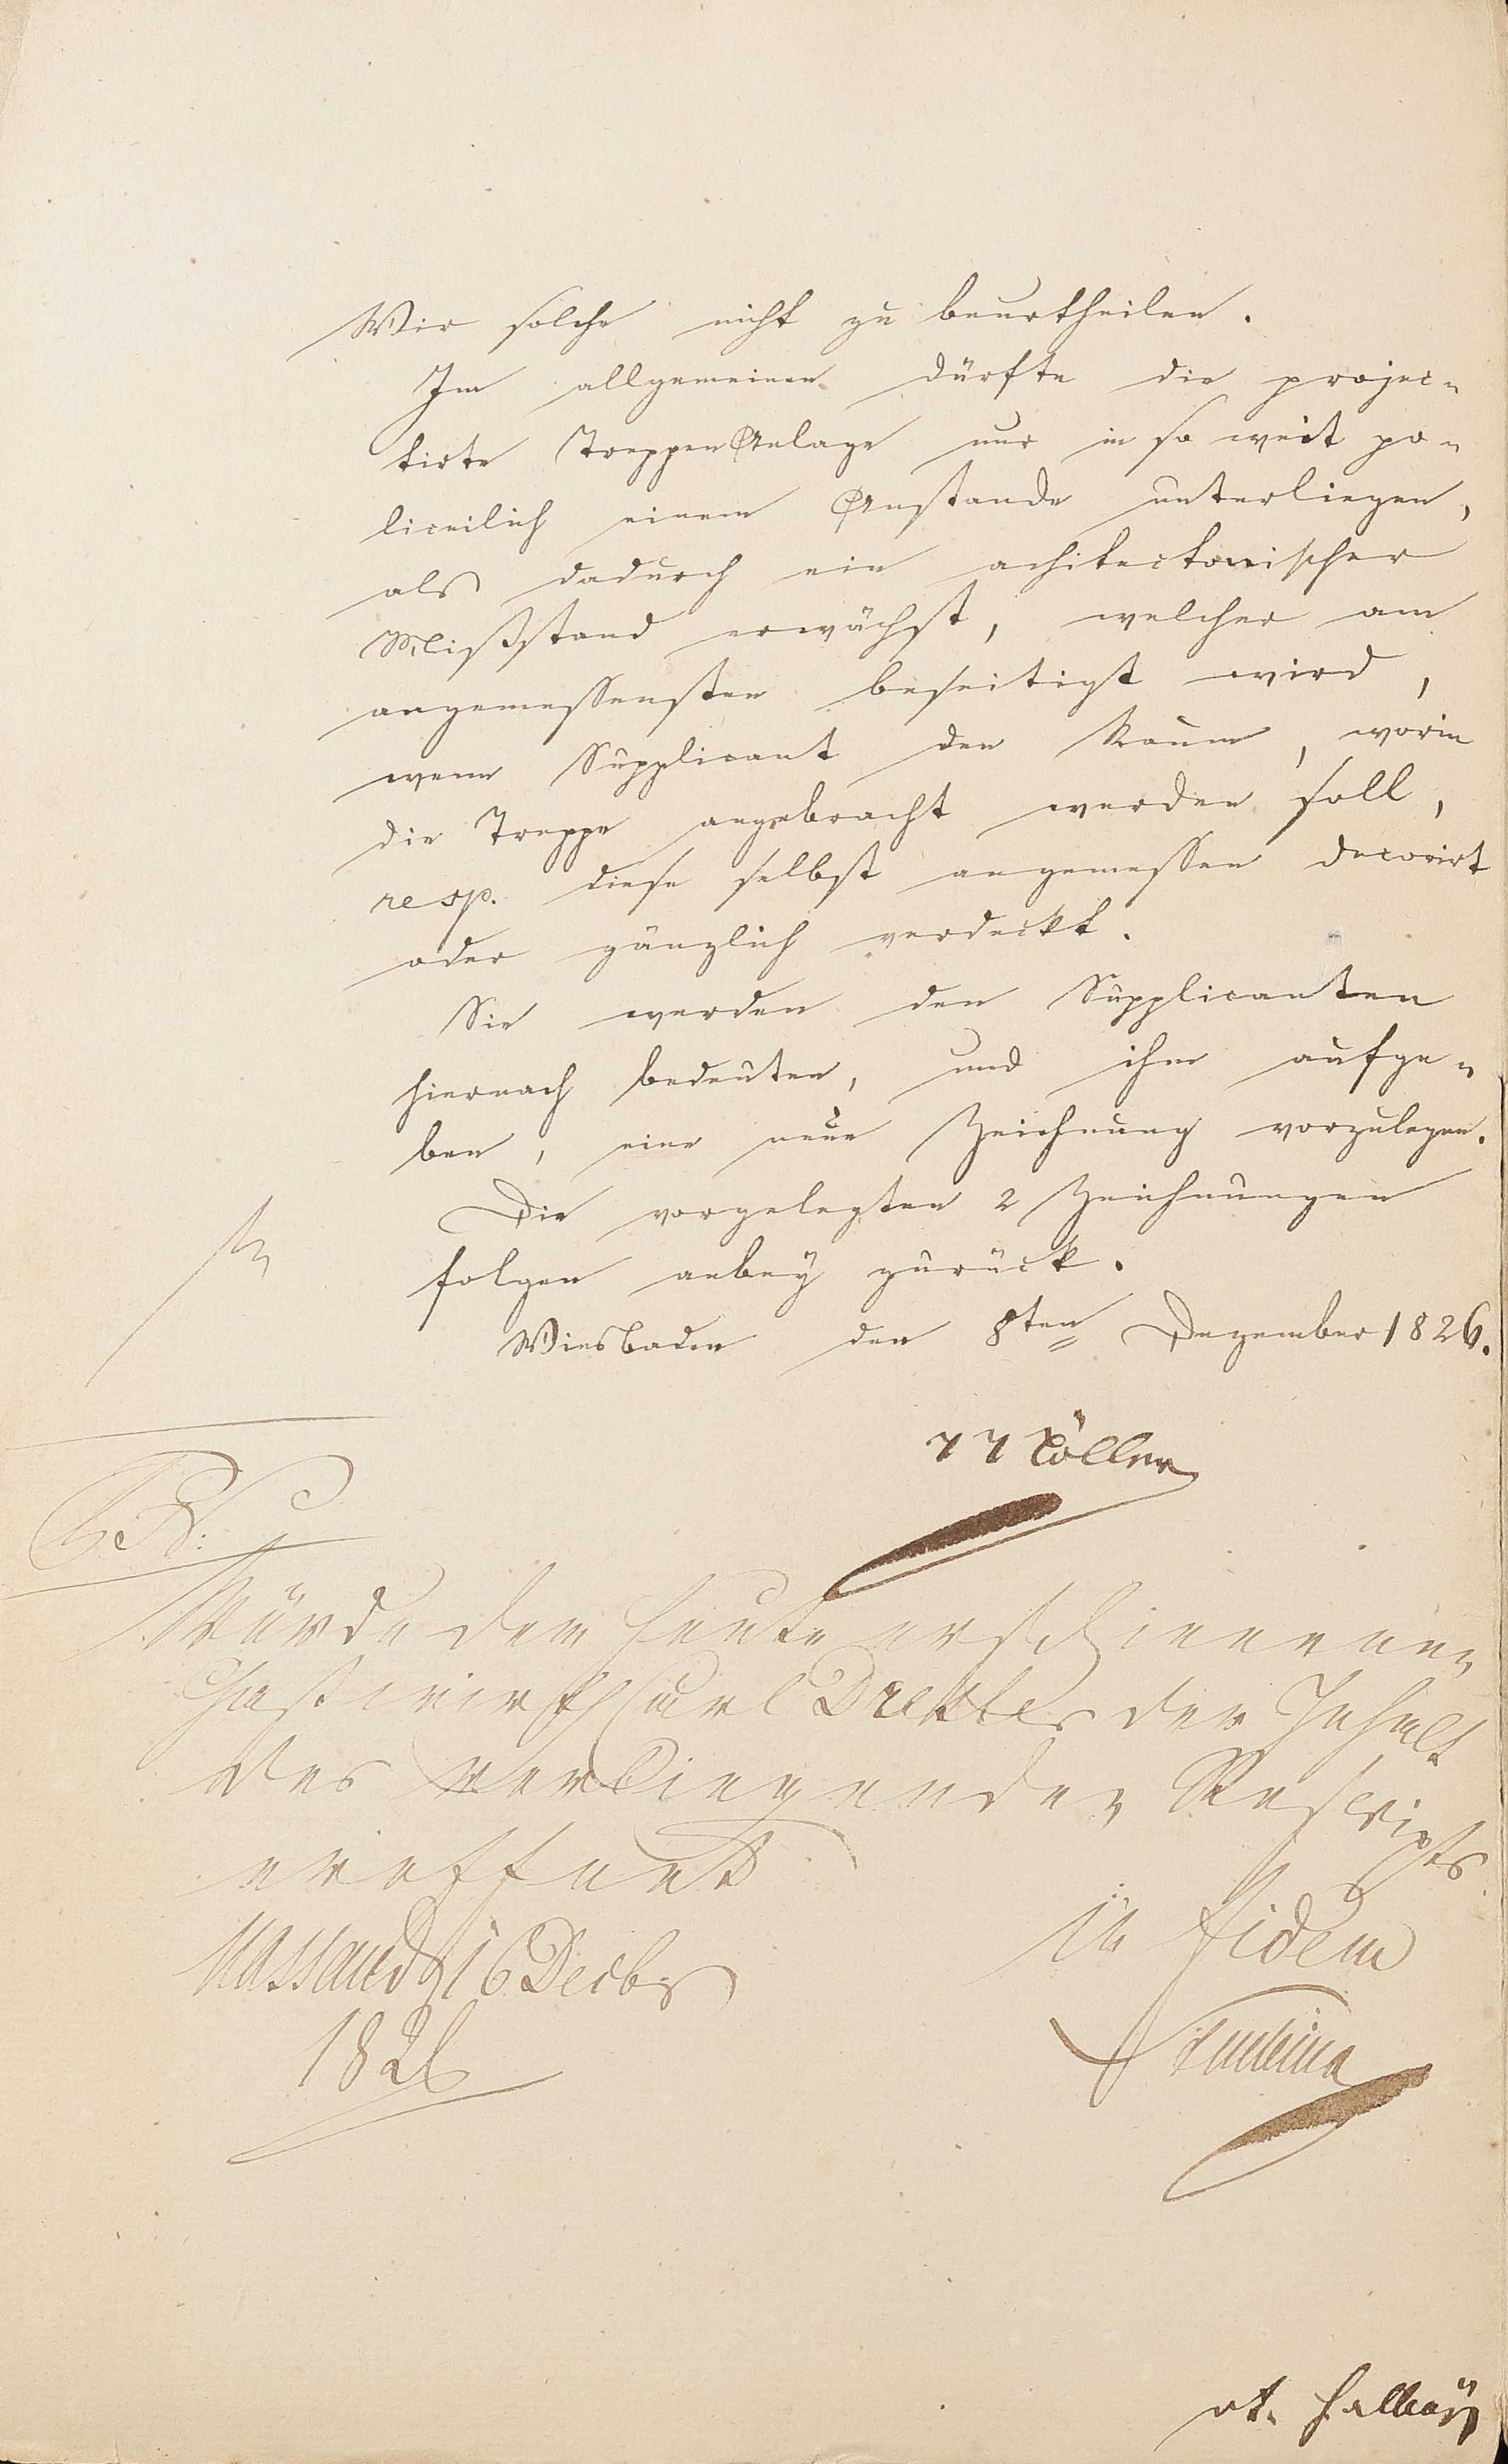 Wir solche nicht zu beurtheilen.
Im allgemeinen dürfte die projec-
tirte Treppen Anlage nur in so weit po-
liceilich einem Anstande unterliegen,
als dadurch ein achitectonischer
Mißstand erwächst, welcher am
angemessensten beseitigt wird,
wenn Supplicant den Raum, worin
die Treppe angebracht werden soll,
resp. diese selbst angemessen decorirt
oder gänzlich verdeckt.
Sie werden den Supplicanten
hiernach bedeuten, und ihm aufge-
ben, eine neue Zeichnung vorzulegen.
Die vorgelegten 2 Zeichnungen
folgen anbey zurück.
Wiesbaden den 8ten Dezember 1826.
Möller
Würde dem heute erschienenen
Gastwirth Carl den Inhalt
des vorliegenden Rescripts
eröffnet
Nassau d 16 Decbr
1826
in fidem
vt. Halbey